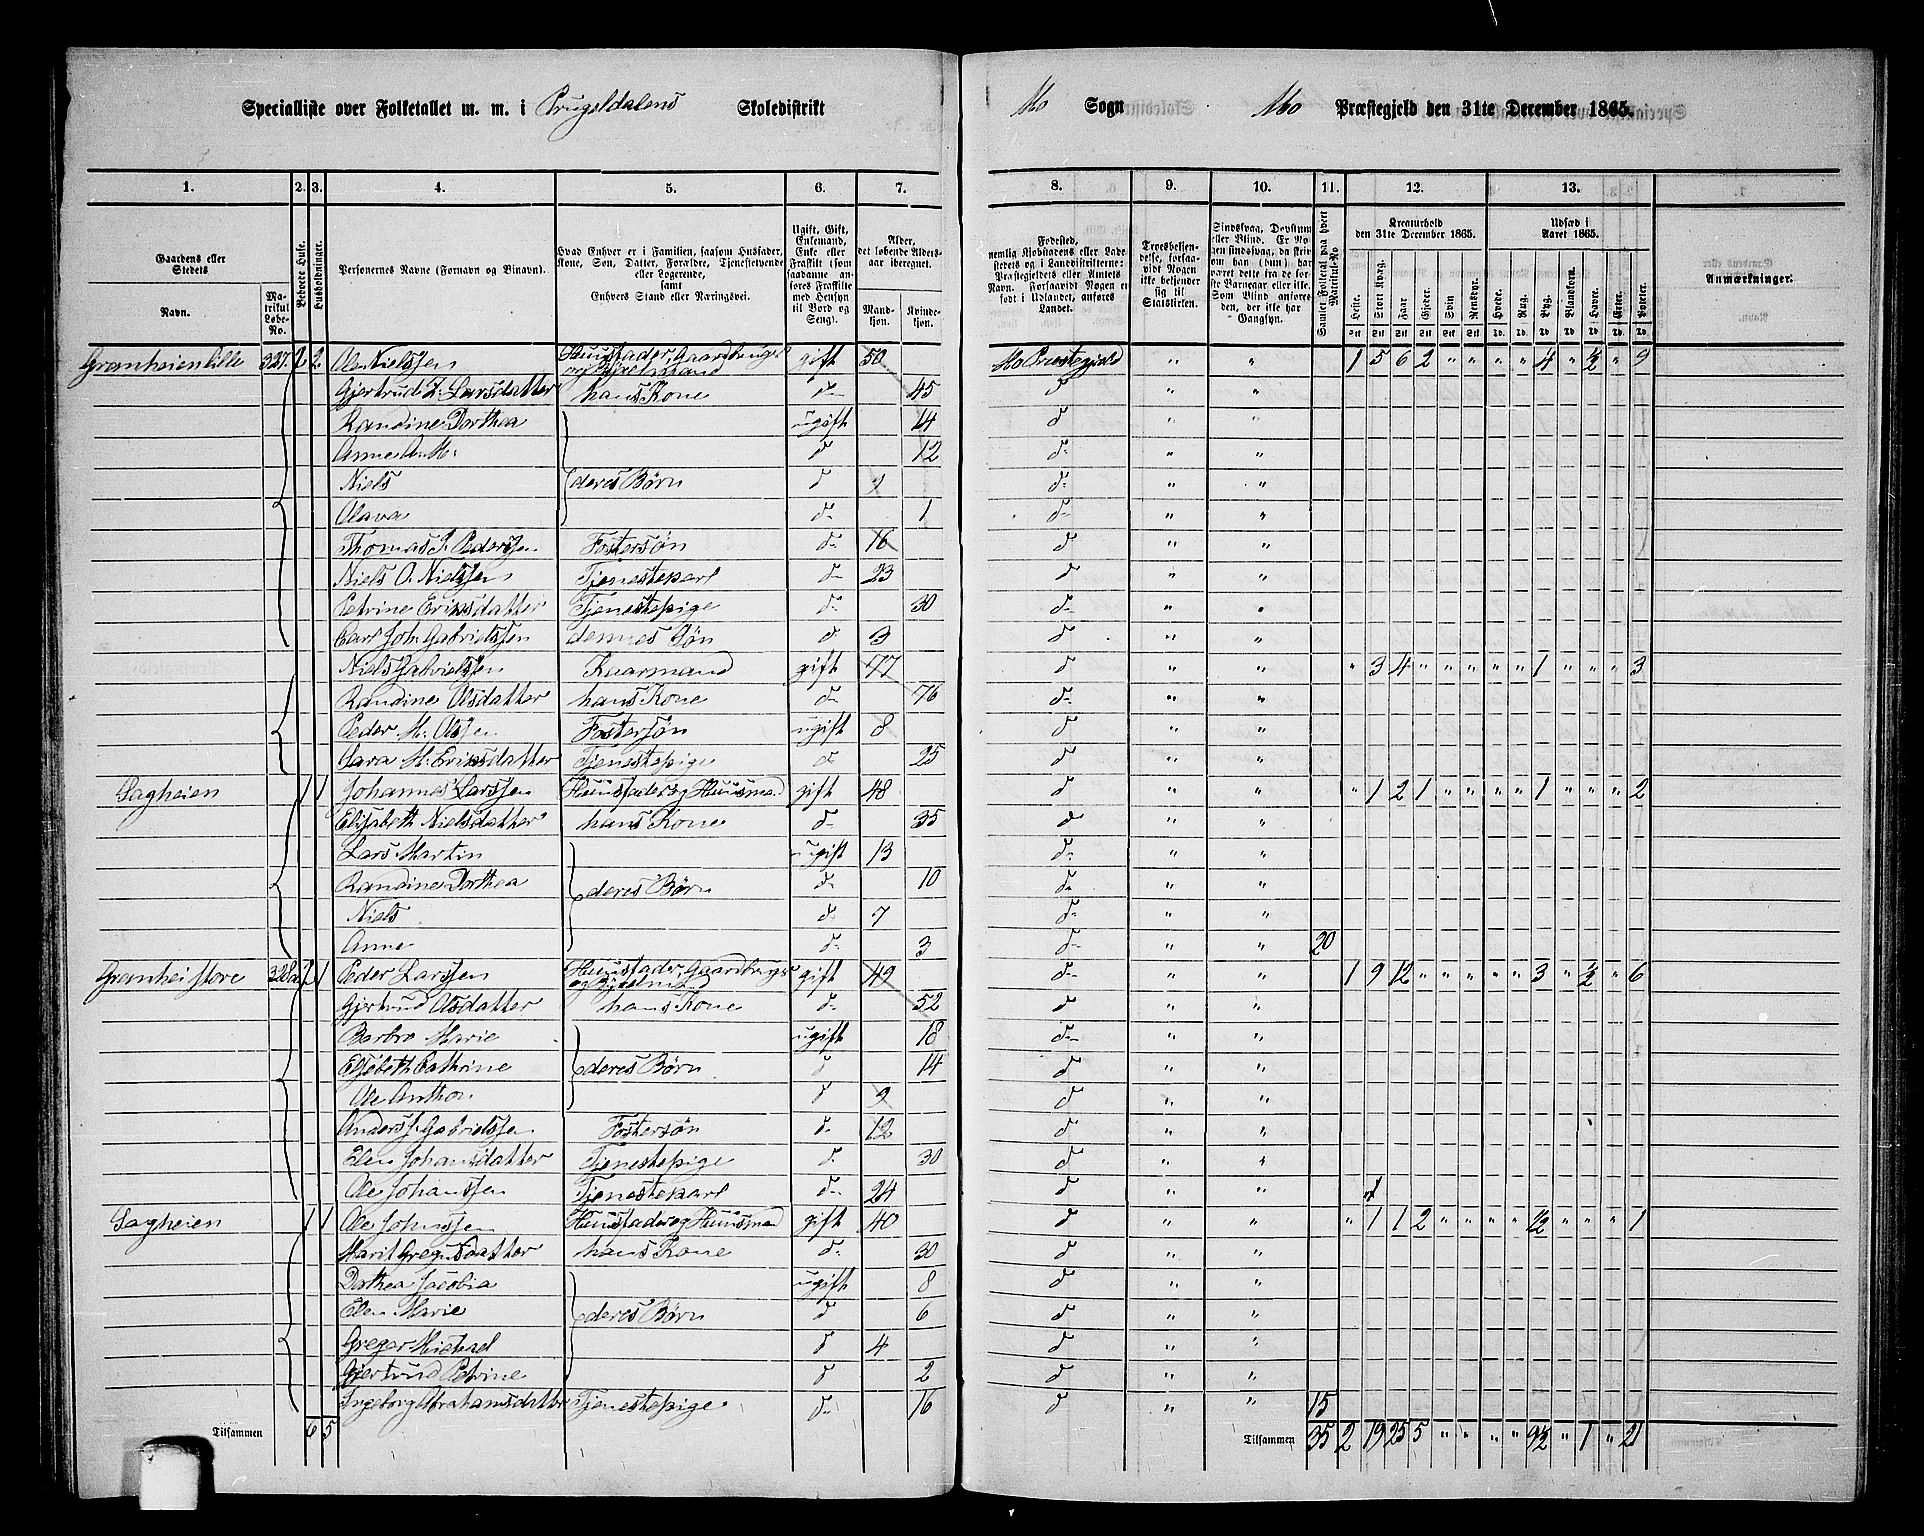 Specialliste over Folketallet m. m. i Prugeldalens Skoledistrikt Mo Sogn Mo Præstegjeld den 31te December 1865.
1. 2. 3. 4. 5. 6. 7. 8. 9. 10. 11. 12. 13.
Gaardens eller Stedets Navn. Matrikul Løbe-No. Beboede Huse. Husholdninger. Personernes Navne (Fornavn og Binavn). Hvad Enhver er i Familien, saasom Husfader, Kone, Søn, Datter, Forældre, Tjenestetyende eller Logerende, samt Enhvers Stand eller Næringsvei. Ugift, Gift, Enkemand, Enke eller Fraskilt (som saadanne anføres Fraskilte med Hensyn til Bord og Seng). Alder, det løbende Aldersaar iberegnet. Mandkjøn. Kvindekjøn. Fødested, Troesbekjendelse, forsaavidt Nogen ikke bekjender sig til Statskirken. Samlet Folketal paa hvert Matrikul-No. Kreaturhold den 31te December 1865. Heste. Stort Kvæg. Faar. Gjeder. Svin. Rensdyr. Udsæd i Aaret 1865. Hvede. Rug. Byg. Blandkorn. Havre. Erter. Poteter. Anmærkninger.
Granheien lille 327. 2 2 Ole Nielssen Huusfader, Gaardbruger og Sjelemand gift 50 Mo Præstegjeld " " 1 5 6 2 " " " " 4 " ½ " 9
Gjertrud L. Larsdatter hans Kone d- 45 d " "
Randine Dorthea ugift 14 d " "
Anne A. M. d 12 d " "
Niels deres Børn d 1 d " "
Olava d- 1 d " "
Thomas J. Pederssen Fostersøn d- 16 d " "
Niels O. Nielssen Tjenestekarl d- 23 d " "
Petrine Eriksdatter Tjenestepige d- 30 d " "
Carl Joh. Gabrielssen dennes Søn d 3 d " "
Niels Gabrielssen Kaarmand gift 77 d " " " 3 4 " " " " " 1 " " " 3
Randine Olsdatter hans Kone d- 76 d " "
Peder M. Olssen Fostersøn ugift 8 d " "
Sara M. Eriksdatter Tjenestepige d 25 d " "
Sagheien 1 1 Johannes Larssen Huusfader og Huusmand gift 48 d " " " 1 2 1 " " " " 1 " " " 2
Elisabeth Nielsdatter hans Kone d- 35 d " "
Lars Martin ugift 13 d " "
Randine Dorthea deres Børn d- 10 d " "
Niels d- 7 d " "
Anne d- 3 d " " 20
Granhei store 328a 2 1 Peder Larssen Huusfader, Gaardbruger og Sjelemand gift 49 d " " 1 9 12 " " " " " 3 " ½ " 6
Gjertrud Olsdatter hans Kone d- 52 d " "
Barbro Marie ugift 18 d " "
Elsebeth Cathrine deres Børn d 14 d " "
Ole Anthon d 9 d " "
Anders J. Gabrielssen Fostersøn d- 12 d " "
Elen Johansdatter Tjenestepige d 30 d " "
Ole Johanssen Tjenestekarl d- 24 d " "
Sagheien 1 1 Ole Johnssen Huusfader og Huusmand gift 40 d " " " 1 1 2 " " " " ½ " " " 1
Marit Gregusdatter hans Kone d- 30 d " "
Dorthea Jacobia ugift 8 d " "
Elen Marie deres Børn d 6 d " "
Greger Michael d 4 d " "
Gjertrud Petrine d 2 d " "
Ingeborg Abrahamsdatter Tjenestepige d- 16 d " " 15
Tilsammen 6 5 Tilsammen 35 2 19 25 5 " " " " 9½ " 1 " 21